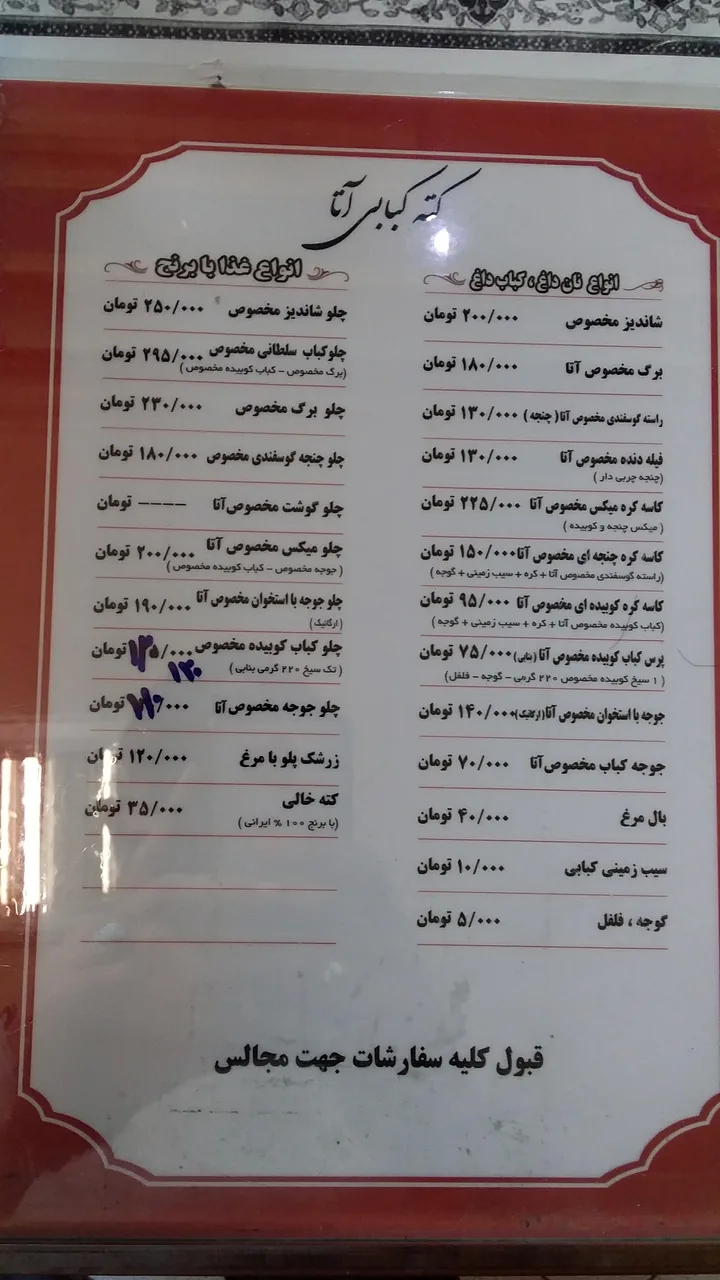 کته کبابی آتا
انواع نان داغ، کباب داغ
شاندیز مخصوص ۲۰۰/۰۰۰ تومان
برگ مخصوص آتا ۱۸۰/۰۰۰ تومان
راسته گوسفندی مخصوص آتا (چنجه) ۱۳۰/۰۰۰ تومان
فیله دنده مخصوص آتا ۱۳۰/۰۰۰ تومان
(چنجه چربی دار)
کاسه کره میکس مخصوص آتا ۲۲۵/۰۰۰ تومان
(میکس چنجه و کوبیده)
کاسه کره چنجه ای مخصوص آتا ۱۵۰/۰۰۰ تومان
(راسته گوسفندی مخصوص آتا + کره + سیب زمینی + گوجه)
کاسه کره کوبیده ای مخصوص آتا ۹۵/۰۰۰ تومان
(کباب کوبیده مخصوص آتا + کره + سیب زمینی + گوجه)
پرس کباب کوبیده مخصوص آتا (بنابی) ۷۵/۰۰۰ تومان
(۱ سیخ کوبیده مخصوص ۲۲۰ گرمی - گوجه - فلفل)
جوجه با استخوان مخصوص آتا (ارگانیک) ۱۴۰/۰۰۰ تومان
جوجه کباب مخصوص آتا ۷۰/۰۰۰ تومان
بال مرغ ۴۰/۰۰۰ تومان
سیب زمینی کبابی ۱۰/۰۰۰ تومان
گوجه ، فلفل ۵/۰۰۰ تومان
انواع غذا با برنج
چلو شاندیز مخصوص ۲۵۰/۰۰۰ تومان
چلوکباب سلطانی مخصوص ۲۹۵/۰۰۰ تومان
(برگ مخصوص - کباب کوبیده مخصوص)
چلو برگ مخصوص ۲۳۰/۰۰۰ تومان
چلو چنجه گوسفندی مخصوص ۱۸۰/۰۰۰ تومان
چلو گوشت مخصوص آتا ---- تومان
چلو میکس مخصوص آتا ۲۰۰/۰۰۰ تومان
(جوجه مخصوص - کباب کوبیده مخصوص)
چلو جوجه با استخوان مخصوص آتا ۱۹۰/۰۰۰ تومان
(ارگانیک)
چلو کباب کوبیده مخصوص /۰۰۰ تومان
(تک سیخ ۲۲۰ گرمی بنابی) ۱۳۰
چلو جوجه مخصوص آتا /۰۰۰ تومان
زرشک پلو با مرغ ۱۲۰/۰۰۰ تومان
کته خالی ۳۵/۰۰۰ تومان
(با برنج ۱۰۰ % ایرانی)
قبول کلیه سفارشات جهت مجالس